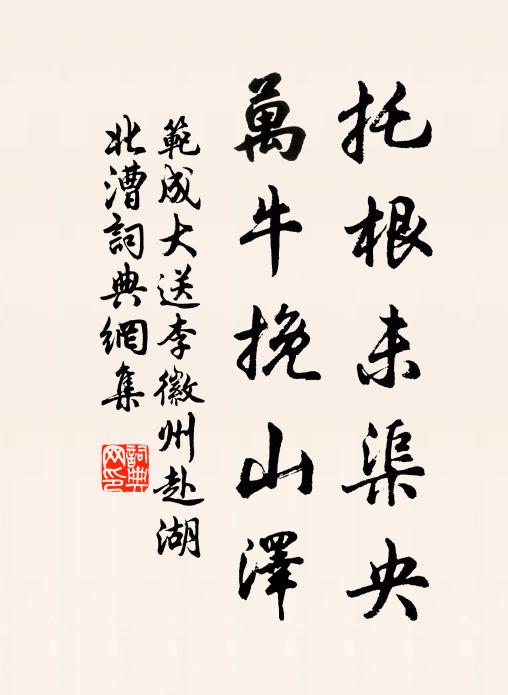 托根未渠央
萬牛挽山澤
範成大送李徽州赴湖
北漕詞典網集
詞典网印